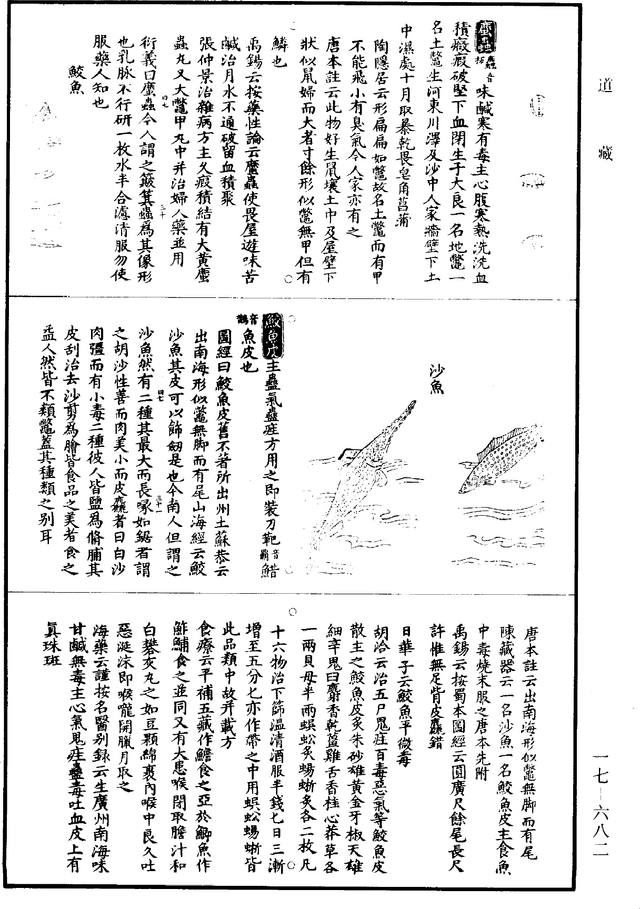 道藏
䗪蟲音柘味鹹寒有毒主心腹寒熱洗洗血
積癥瘕破堅下血閉生子大良一名地鼈一
名土鼈生河東川澤及沙中人家牆壁下土
中濕處十月取暴乾畏皂角菖蒲
陶隱居云形扁扁如鼈故名土鼈而有甲
不能飛小有臭氣今人家亦有之
唐本註云此物好生鼠壤土中及屋壁下
狀似鼠婦而大者寸餘形似鼈無甲但有
鱗也
禹錫云按藥性論云䗪蟲使畏屋遊味苦
鹹治月水不通破留血積聚
張仲景治雜病方主久瘕積結有大黄䗪
蟲丸又大鼈甲丸中并治婦人藥並用
衍義曰䗪蟲今人謂之簸箕蟲爲其像形
也乳脉不行研一枚水半合濾清服勿使
服藥人知也
鮫魚
沙魚
鮫魚皮主蠱氣蠱疰方用之即裝刀靶音霸䱜
音鵲魚皮也
圖經曰鮫魚皮舊不著所出州土蘇恭云
出南海形似鼈無脚而有尾山海經云鮫
沙魚其皮可以飾劒是也今南人但謂之
沙魚然有二種其最大而長喙如鋸者謂
之胡沙性善而肉美小而皮麤者曰白沙
肉彊而有小毒二種彼人皆鹽爲脩脯其
皮刮治去沙剪爲膾皆食品之美者食之
益人然皆不類鼈蓋其種類之别耳
唐本註云出南海形似鼈無脚而有尾
陳藏器云一名沙魚一名鮫魚皮主食魚
中毒燒末服之唐本先附
禹錫云按蜀本圖經云圓廣尺餘尾長尺
許惟無足背皮麤錯
日華子云鮫魚平微毒
胡洽云治五尸鬼疰百毒惡氣等鮫魚皮
散主之鮫魚皮炙朱砂雄黄金牙椒天雄
細辛鬼臼麝香乾薑雞舌香桂心莽草各
一兩貝母半兩蜈蚣炙蜴蜥炙各二枚凡
十六物治下篩温清酒服半錢匕日三漸
增至五分匕亦作帶之中用蜈蚣蜴蜥皆
此品類中故并載方
食療云平補五藏作鱠食之亞於鯽魚作
鮓鯆食之並同又有大患喉閉取膽汁和
白礬灰丸之如豆顆綿裹内喉中良久吐
惡涎沫即喉嚨開臘月取之
海藥云謹按名醫别録云生廣州南海味
甘鹹無毒主心氣鬼疰蠱毒吐血皮上有
眞珠斑
一七—六八二